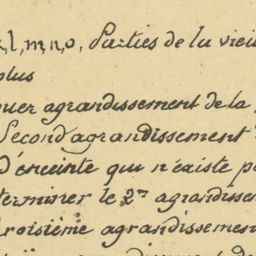 l, m, n, o, Parties de la vieil
plus
uer agrandissement de la
Second agrandissement
d'enceinte qui n'existe p
terminer le 2me agrandissem
troisième agrandissemen